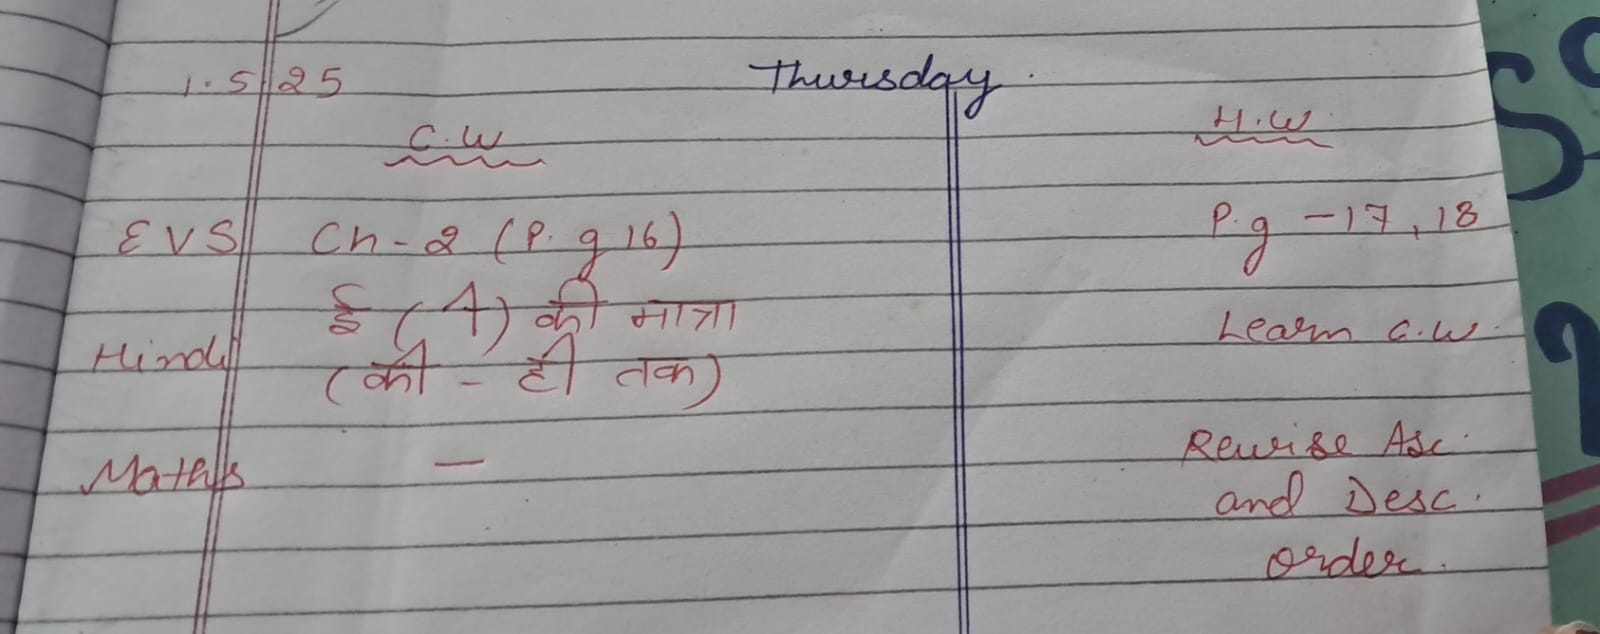 1.5.25 Thursday.
C.W H.W.
EVS Ch-2 (P.g 16) P.g -17, 18
Hindi ई (ी) की मात्रा Learn C.W.
(की - ही तक)
Maths — Rewise Asc.
and Desc.
order.